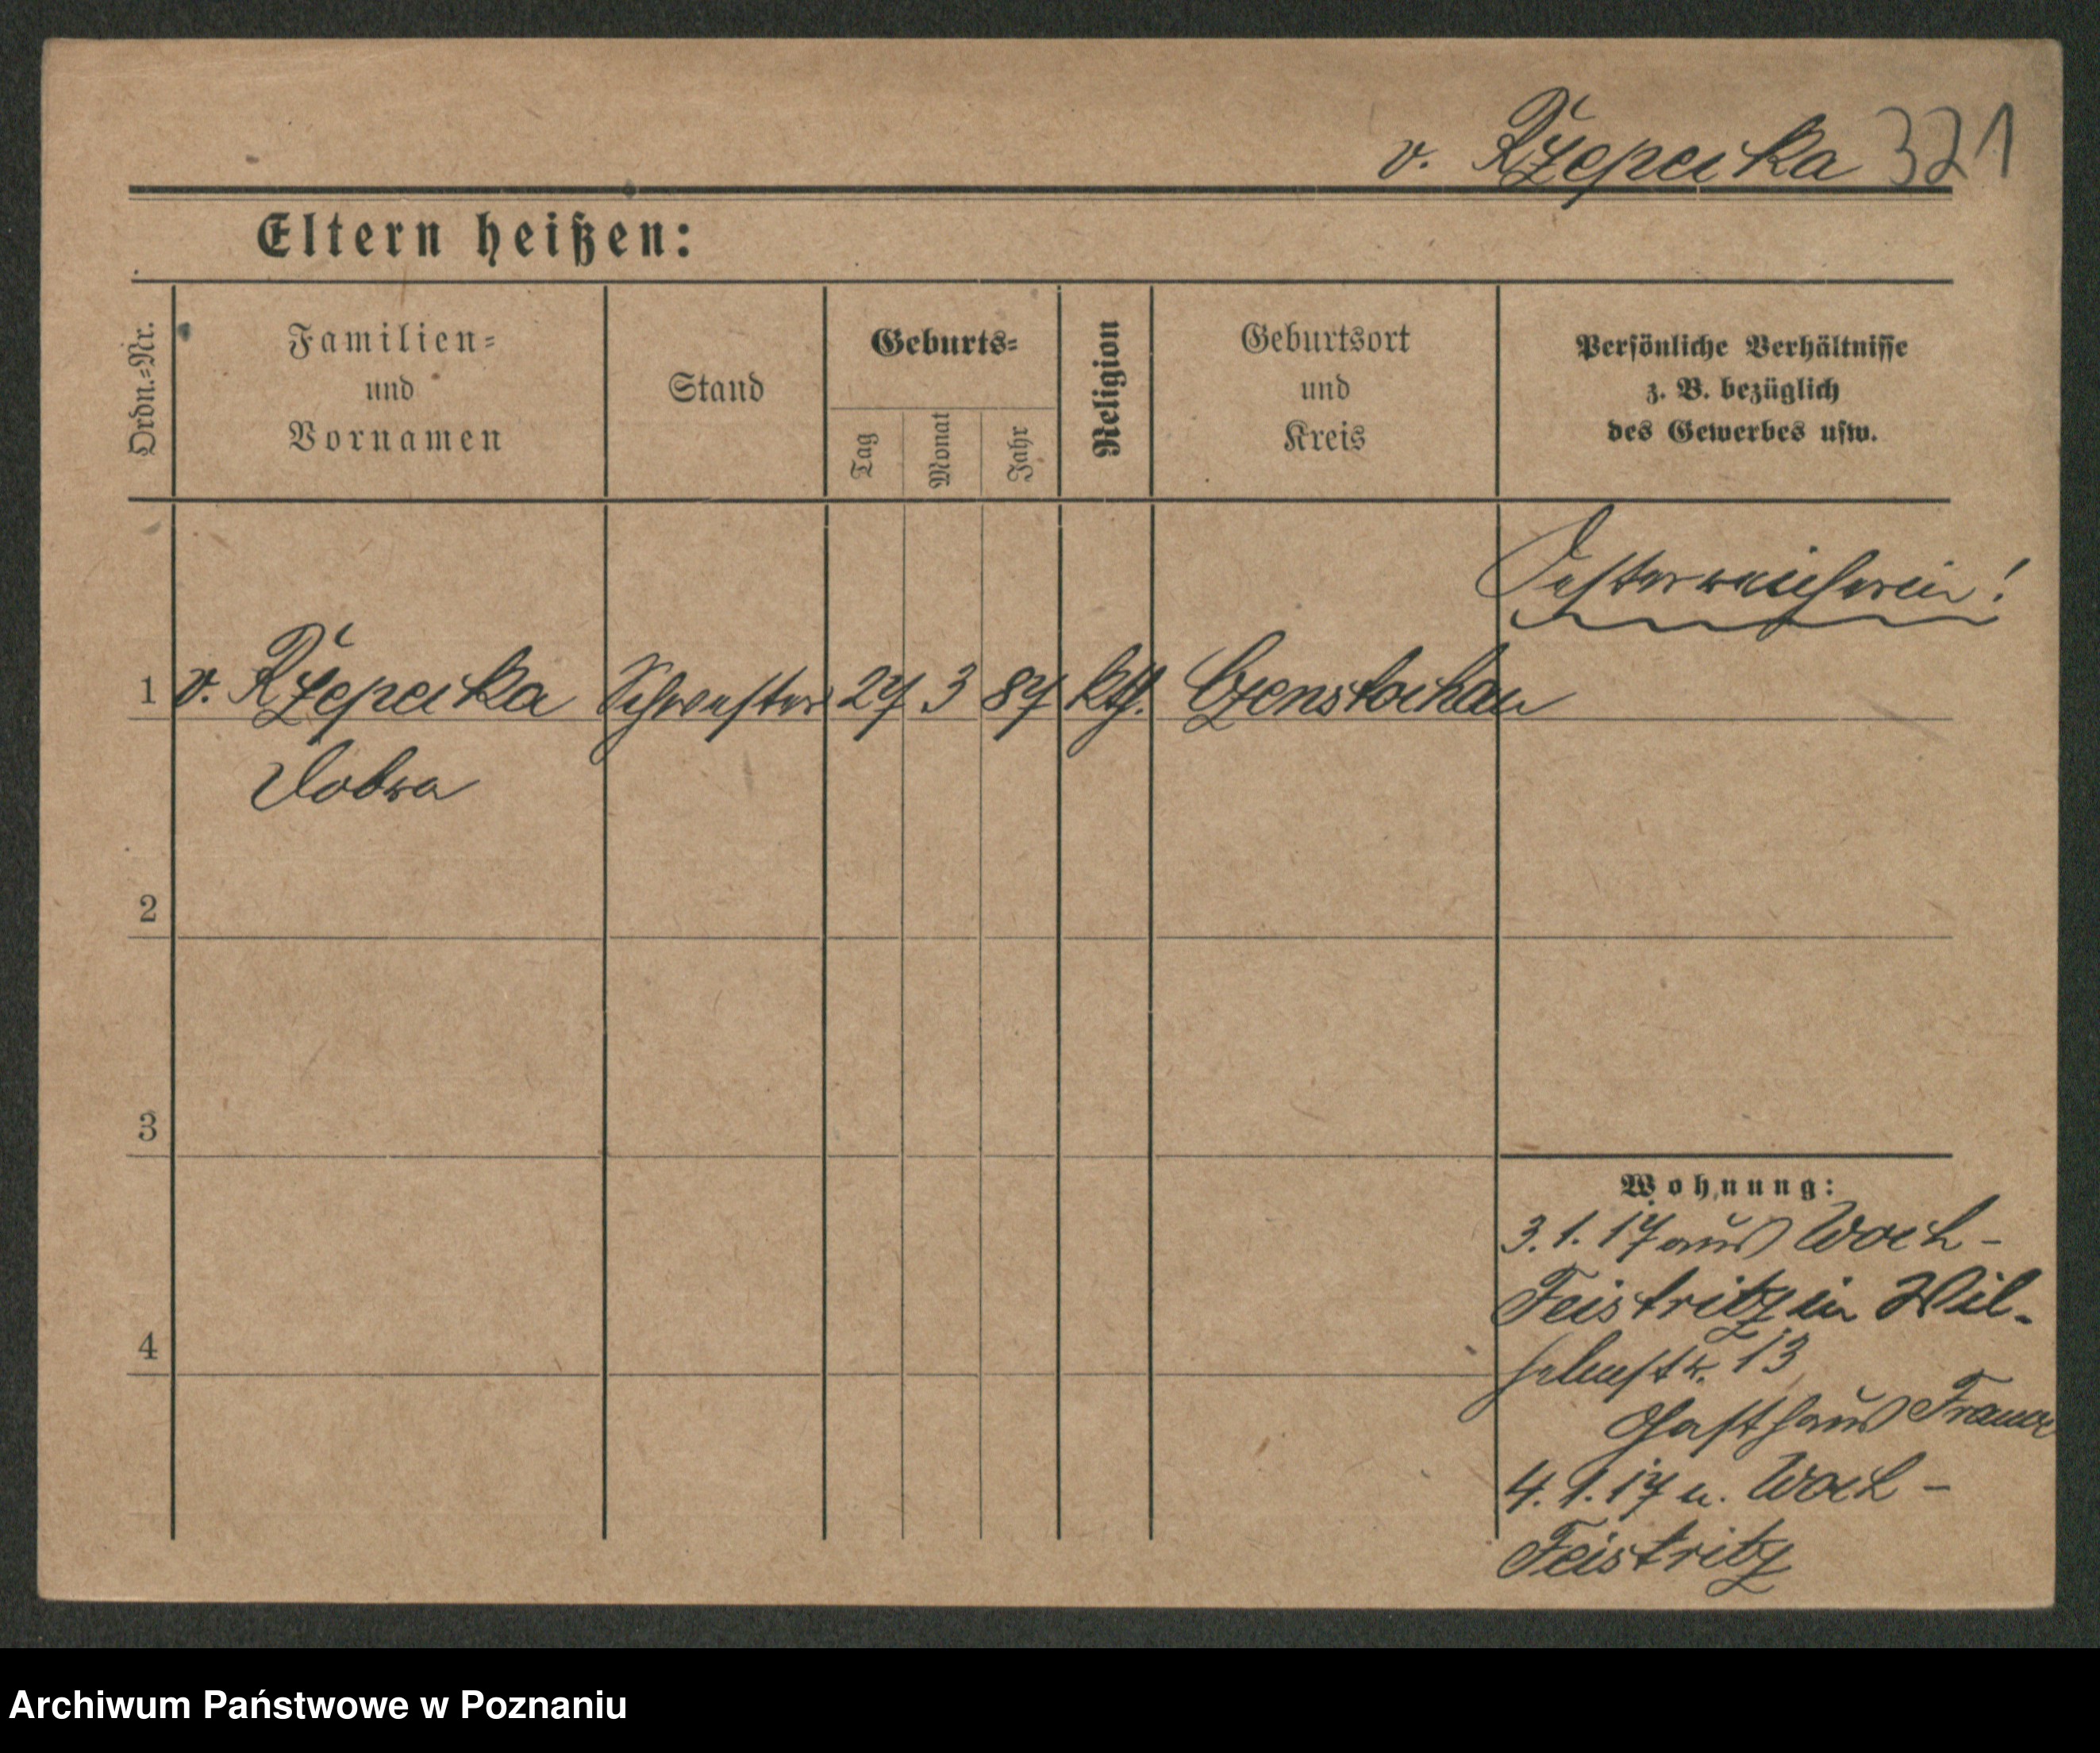 v. Rzepecka 321
Eltern heißen:
Ordn.-Nr.
Familien-
und
Vornamen
Stand
Geburts-
Tag
Monat
Jahr
Religion
Geburtsort
und
Kreis
Persönliche Verhältnisse
z. B. bezüglich
des Gewerbes usw.
Oesterreicherin!
1 v. Rzepecka Schwester 27 3 87 kth. Czenstochau
Dobra
2
3
4
Wohnung:
3.1.17 aus Woch-
Feistritz in Wil-
helmstr. 13
Gasthaus
4.1.17 n. Woch-
Feistritz
Archiwum Państwowe w Poznaniu